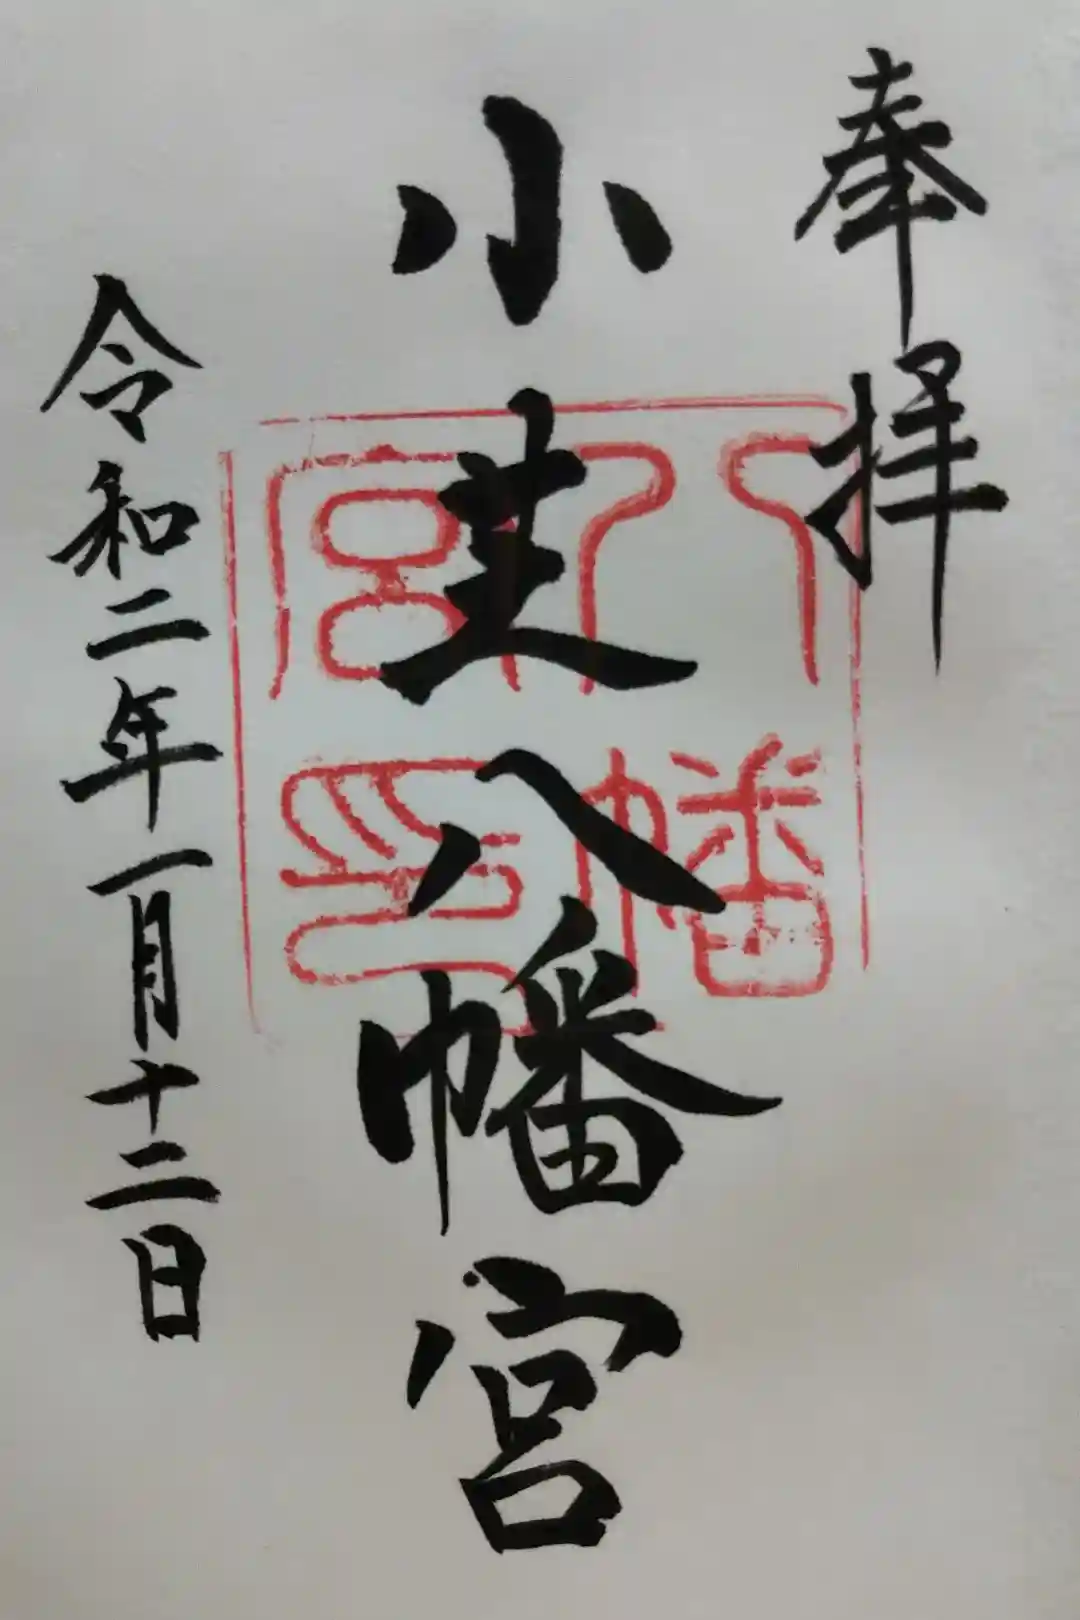 奉拝
小芝八幡宮
令和二年一月十二日
八幡
宮印